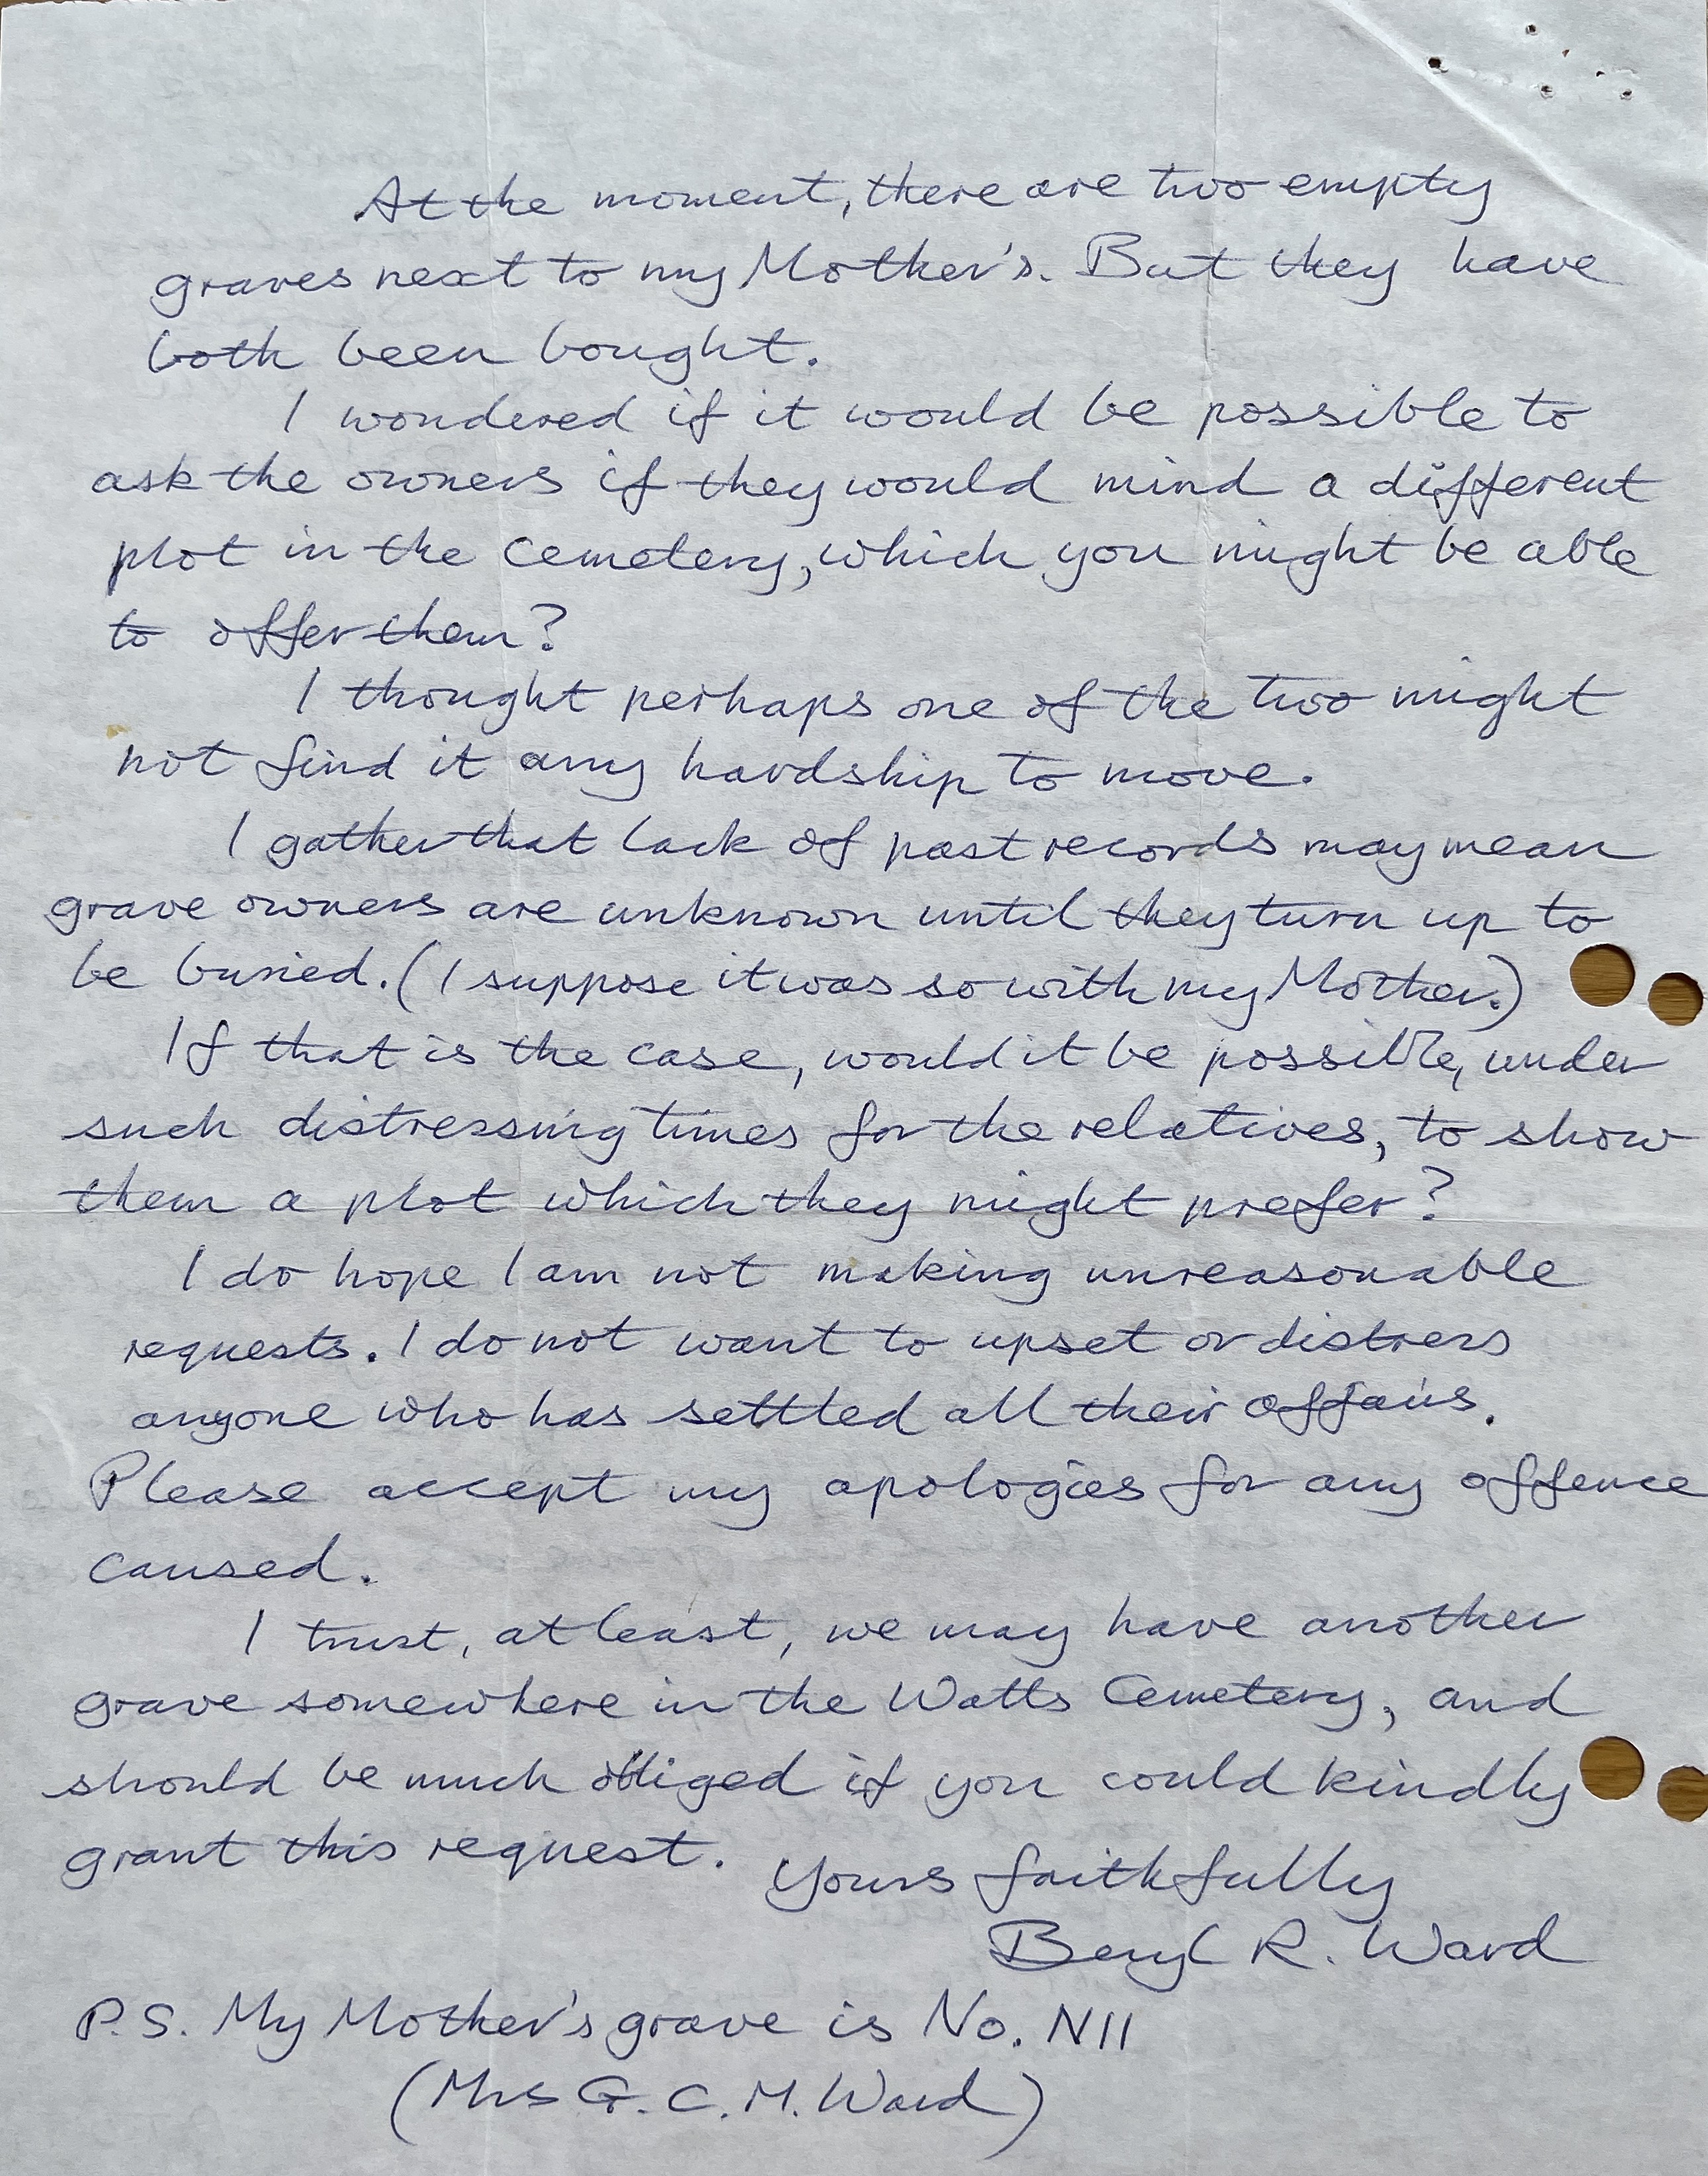 At the moment, there are two empty
graves next to my Mother's. But they have
both been bought.
I wondered if it would be possible to
ask the owners if they would mind a different
plot in the cemetery, which you might be able
to offer them?
I thought perhaps one of the two might
not find it any hardship to move.
I gather that lack of past records may mean
grave owners are unknown until they turn up to
be buried. (I suppose it was so with my Mother.)
If that is the case, would it be possible, under
such distressing times for the relatives, to show
them a plot which they might prefer?
I do hope I am not making unreasonable
requests. I do not want to upset or distress
anyone who has settled all their affairs.
Please accept my apologies for any offence
caused.
I trust, at least, we may have another
grave somewhere in the Watts Cemetery, and
should be much obliged if you could kindly
grant this request.
Yours faithfully
Beryl R. Ward
P.S. My Mother's grave is No. N11
(Mrs G. C. M. Ward)